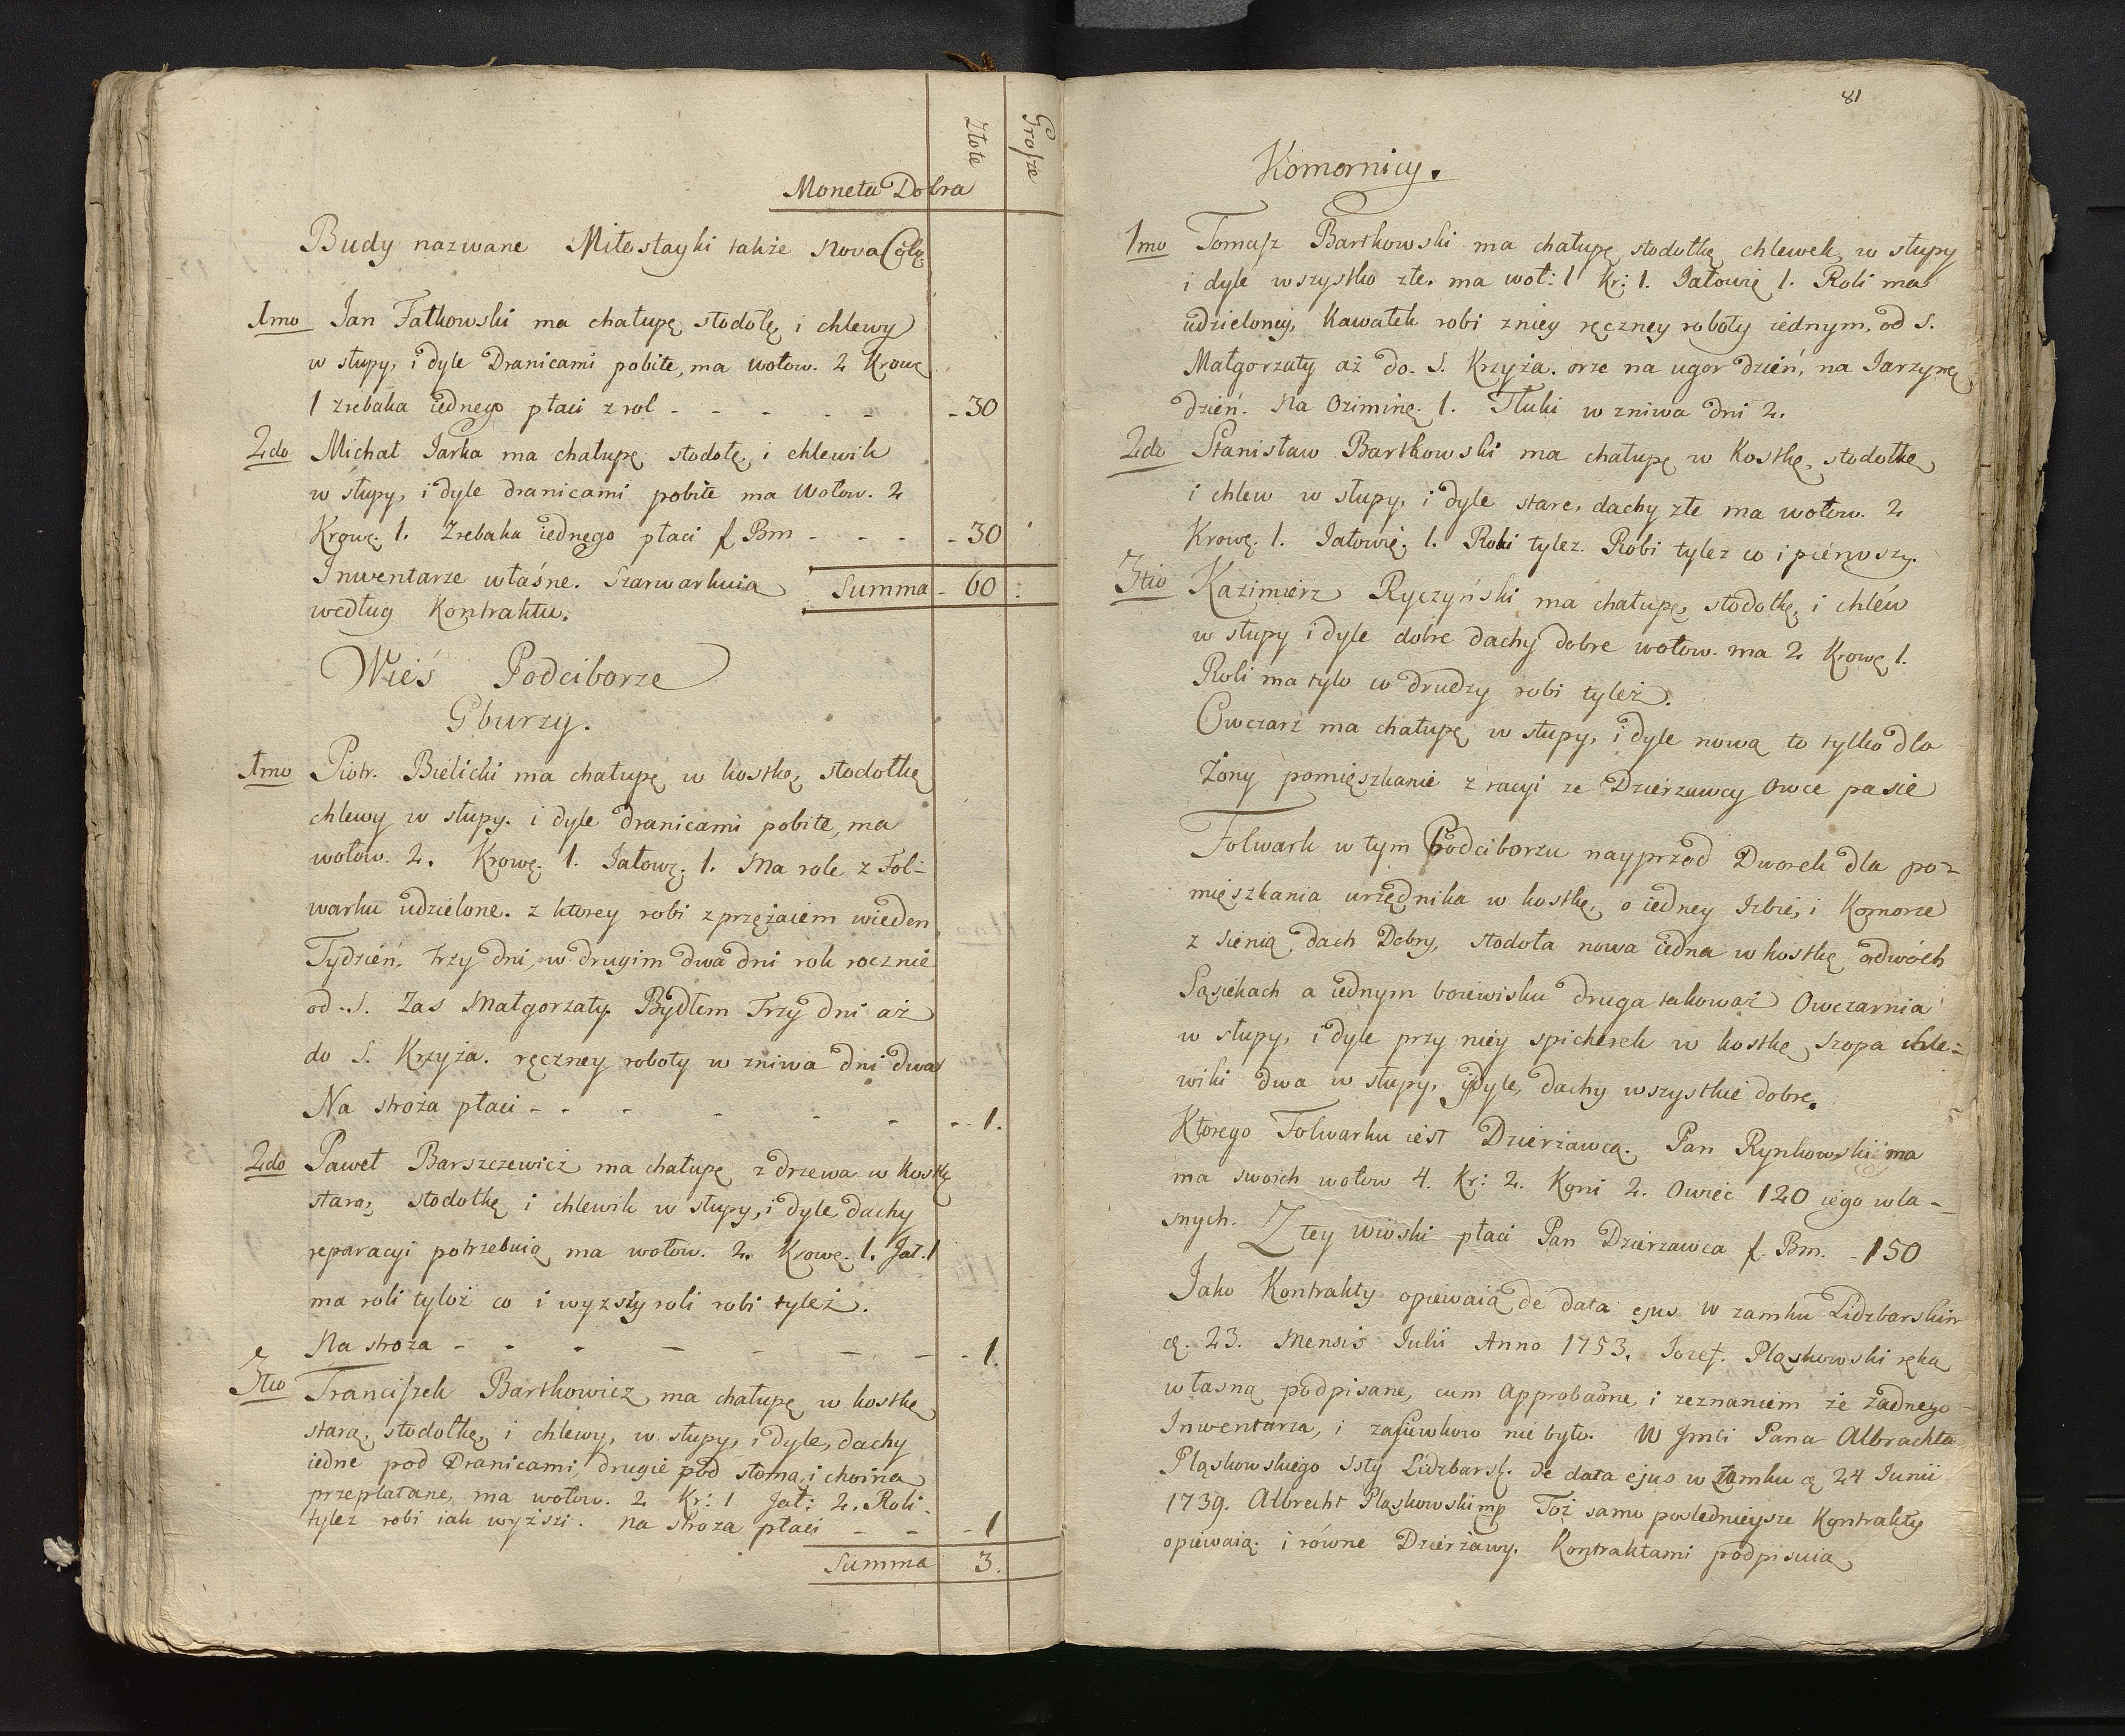 Złote
Grosze
Moneta Dobra
Budy nazwane Miłostayki także Nova
1mo Jan Fatkowski ma chałupę stodołę i chlewy
w słupy, i dyle Dranicami pobite, ma wołow. 2 Krowę
1 zrebaka iednego płaci z rol - - - - - - 30
2do Michał Jarka ma chałupę stodołę i chlewik
w słupy, i dyle dranicami pobite ma Wołow. 2
Krowę. 1. Zrebaka iednego płaci f Bm - - - - 30
Inwentarze własne. Szarwarkuią Summa - 60
według Kontraktu.
Wieś Podciborze
Gburzy.
1mo Piotr. Bielicki ma chałupę w kostkę, stodołkę
chlewy w słupy. i dyle dranicami pobite, ma
wołow. 2. Krowę. 1. Jałowę. 1. Ma role z Fol-
warku udzielone. z ktorey robi zprzężaiem wieden
Tydzień. trzy dni, w drugim dwa dni rok rocznie
od S. Zas Małgorzaty. Bydłem Trzy dni aż
do S. Krzyża. ręczney roboty w zniwa dni dwa
Na stroża płaci - - - - - - - 1.
2do Paweł Barszczewicz ma chałupę z drzewa w kostkę
starą, stodołkę i chlewik w słupy, i dyle, dachy
reparacyi potrzebuią ma wołow. 2. Krowę. 1. Jał. 1
ma roli tyloż co i wyzszy roli robi tyleż.
Na stroza - - - - - - - 1.
3tio Franciszek Bartkowicz ma chałupę w kostkę
starą, stodołkę, i chlewy, w słupy, i dyle, dachy
iedne pod Dranicami, drugie pod słomą, i choiną
przeplatane, ma wołow. 2 Kr: 1 Jał: 2. Roli
tylez robi iak wyższi. na stroza płaci - - - 1
Summa 3.
81
Komornicy.
1mo Tomasz Bartkowski ma chałupę stodołkę chlewek, w słupy
i dyle wszystko złe. ma woł: 1 Kr: 1. Jałowię 1. Roli ma
udzieloney, Kawałek robi zniey ręczney roboty iednym, od S.
Małgorzaty aż do. S. Krzyża. orze na ugor dzień, na Jarzynę
dzień. Na Oziminę. 1. Tłuki w zniwa dni 2.
2do Stanisław Bartkowski ma chałupę w Kostkę, stodołkę
i chlew w słupy, i dyle stare, dachy złe ma wołow. 2
Krowę. 1. Jałowię. 1. Roli tylez. Robi tylez co i pierwszy.
3tio Kazimierz Ryczyński ma chałupę, stodołkę, i chlew
w słupy i dyle dobre dachy dobre wołow. ma 2 Krowę 1.
Roli ma tylo co drudzy robi tyleż.
Owczarz ma chałupę w słupy, i dyle nową to tylko dla
Żony pomięszkanie z racyi ze Dzierzawcy Owce pasie
Folwark w tym Podciborzu nayprzod Dworek dla po-
mięszkania urzędnika w kostkę, o iedney Izbie, i Komorze
z sienią, dach Dobry, stodoła nowa iedna w kostkę o dwoch
Sąsiekach a iednym boiewisku druga takoważ Owczarnia
w słupy, i dyle przy niey spicherek w kostkę, szopa chle-
wiki dwa w słupy, i dyle, dachy wszystkie dobre.
Ktorego Folwarku iest Dzierżawcą. Pan Rynkowski ma
ma swoich wołow 4. Kr: 2. Koni 2. Owiec 120 iego wła-
snych. Z tey wioski płaci Pan Dzierzawca f. Bm. - 150
Jako Kontrakty opiewaią de data ejus w zamku Lidzbarskim
23. Mensis Julii Anno 1753. Jozef. Pląskowski ręką
własną podpisane, cum Approbaone, i zeznaniem że żadnego
Inwentarza, i zasiewkow nie było. W Jmci Pana Albrachta
Pląskowskiego Ssty Lidzbarsk. de data ejus w zamku 24 Junii
1739. Albrecht Pląskowski mp Toż samo poslednieysze Kontrakty
opiewaią. i rowne Dzierżawy. Kontraktami podpisuią